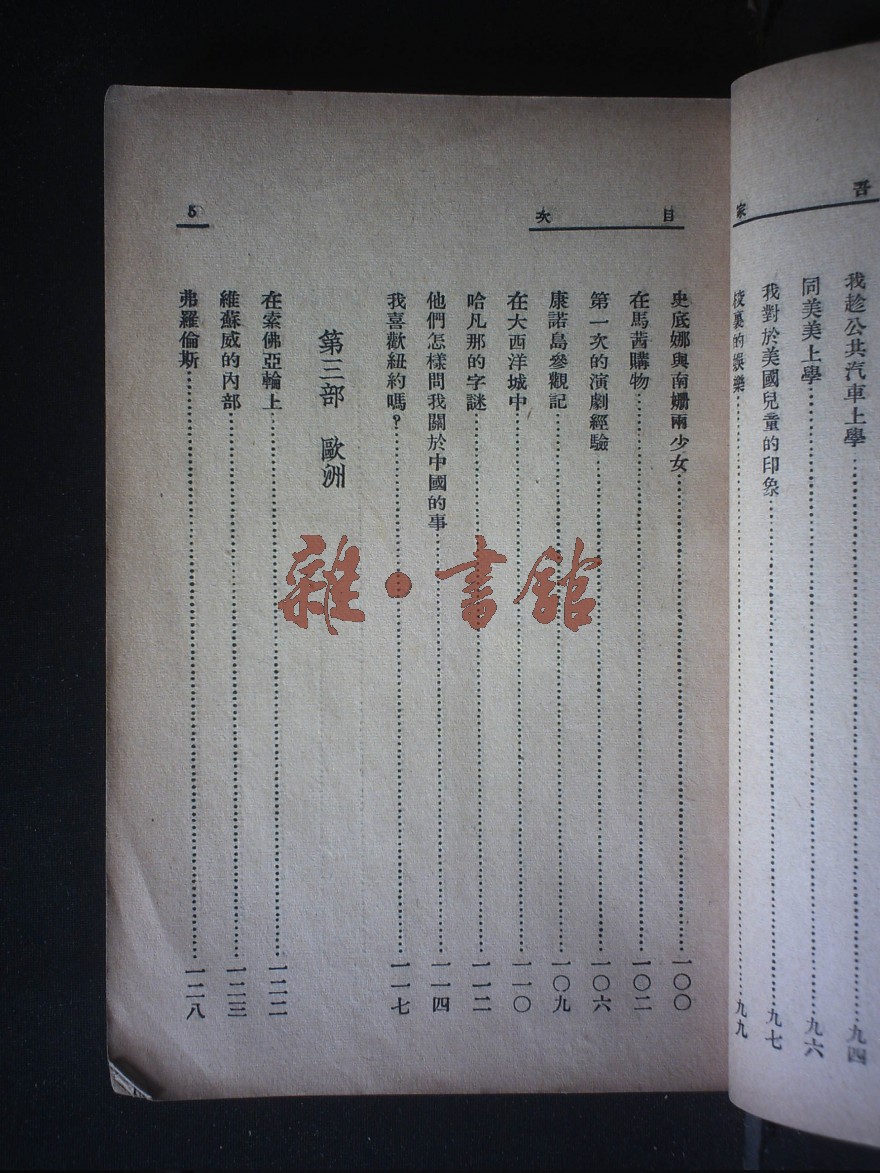 吾
家
我趁公共汽車上學……九四
同美美上學……九六
我對於美國兒童的印象……九七
校裏的娛樂……九九
目次
5
史底娜與南姍兩少女……一〇〇
在馬茜購物……一〇二
第一次的演劇經驗……一〇六
康諾島參觀記……一〇九
在大西洋城中……一一〇
哈凡那的字謎……一一二
他們怎樣問我關於中國的事……一一四
我喜歡紐約嗎?……一一七
第三部 歐洲
在索佛亞輪上……一二二
維蘇威的內部……一二三
弗羅倫斯……一二八
雜·書館